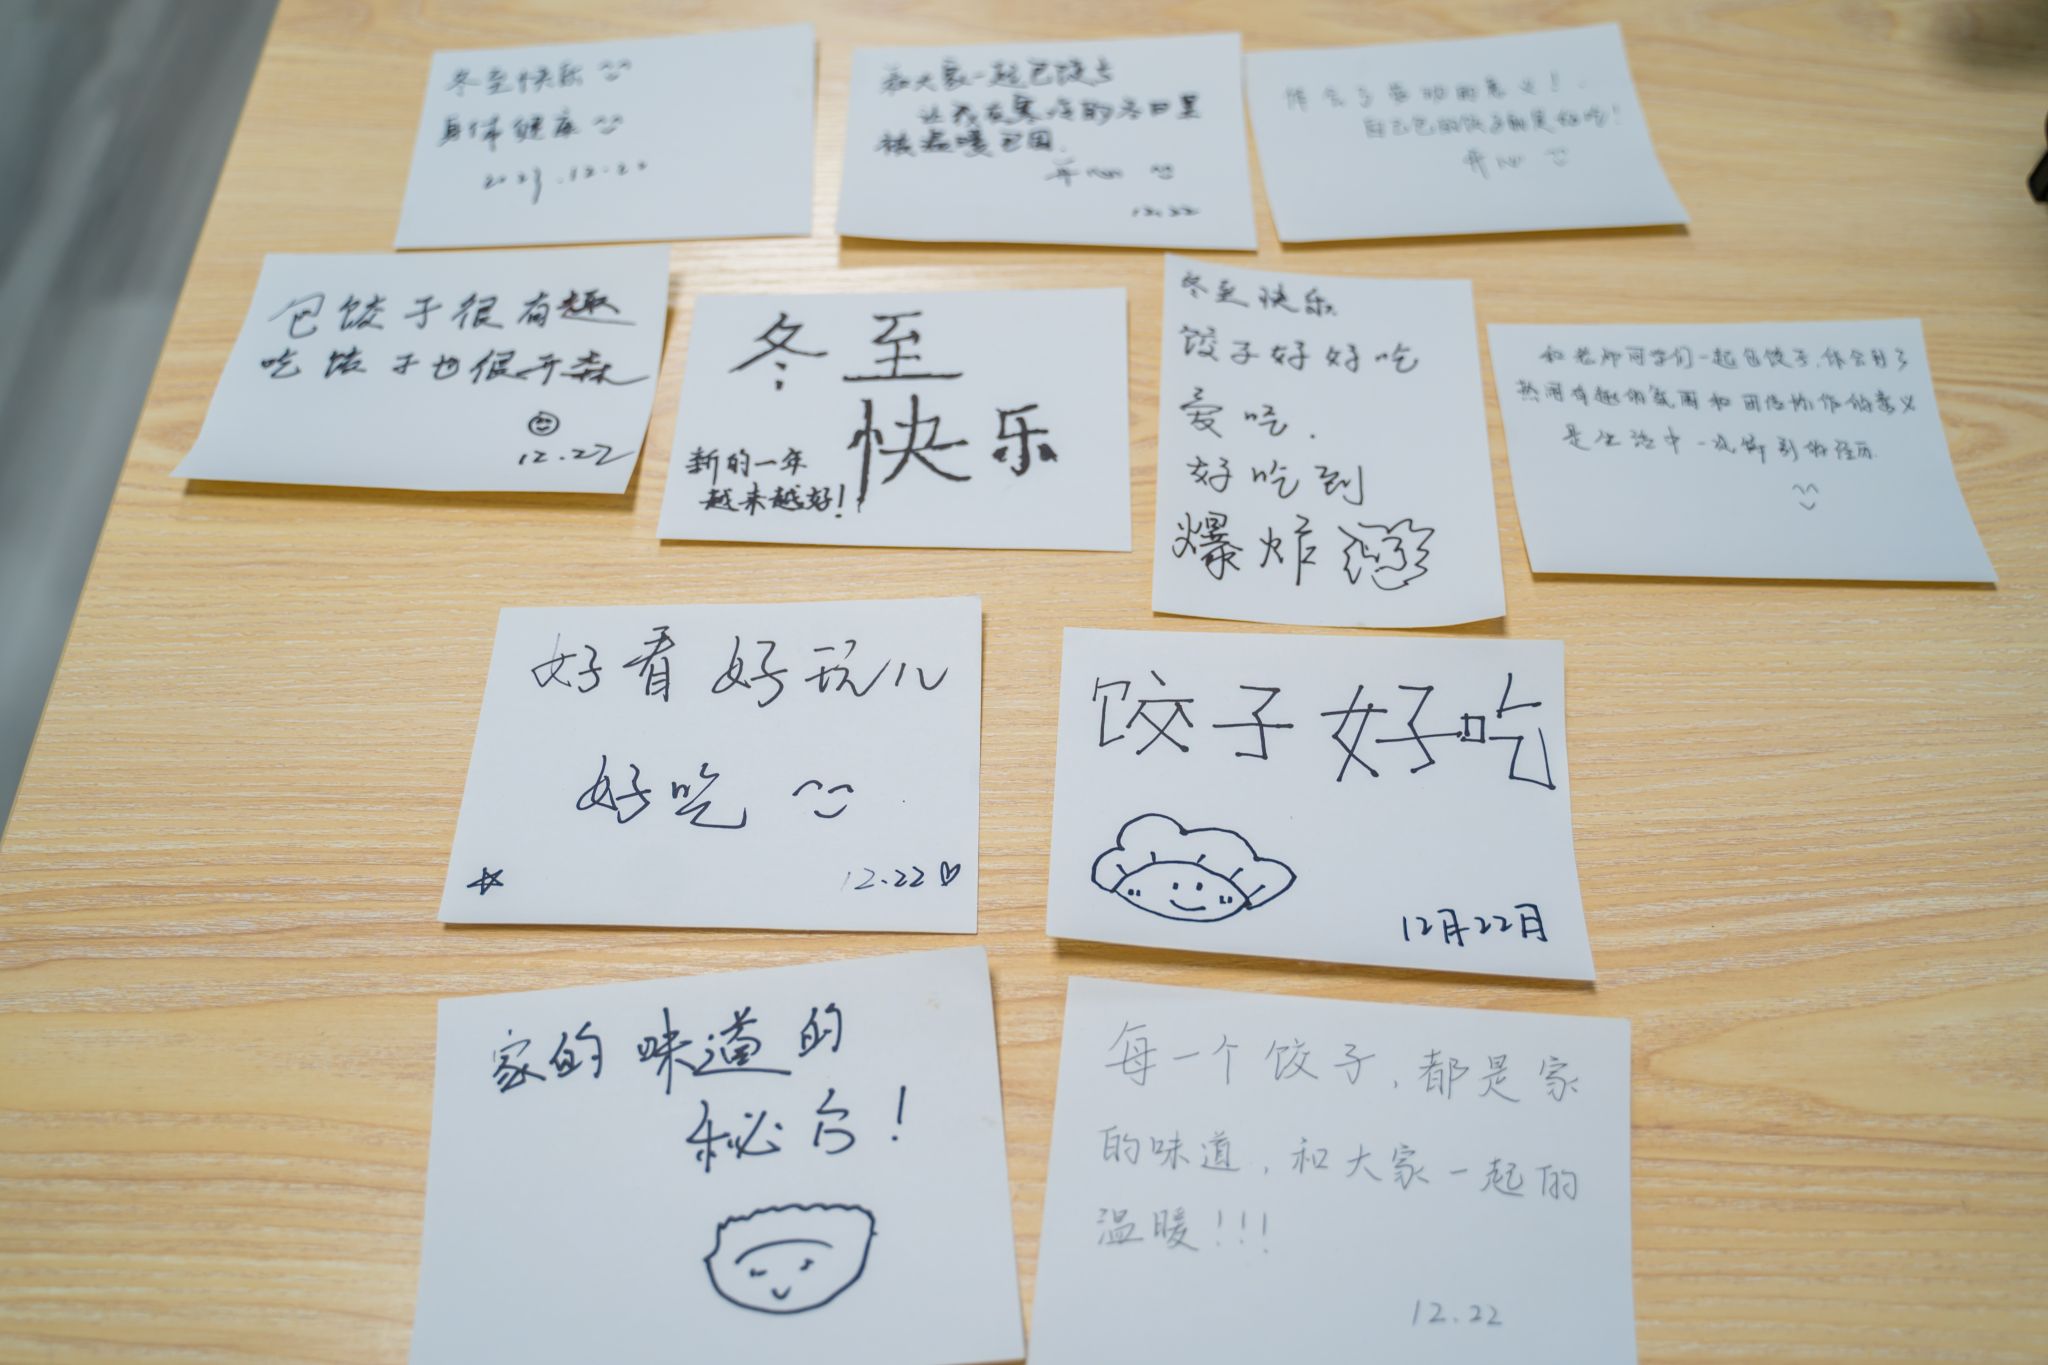 冬至快乐
身体健康
2023.12.22
和大家一起包饺子
让我在寒冷的冬日里
被温暖包围.
开心
12.22
体会了劳动的意义!
自己包的饺子都是好吃!
开心
包饺子很有趣
吃饺子也很开森
12.22
冬至
快乐
新的一年
越来越好!
冬至快乐
饺子好好吃
爱吃.
好吃到
爆炸
和老师同学们一起包饺子,体会到了
热闹有趣的氛围和团结协作的意义
是生活中一次特别的经历.
好看好玩儿
好吃
12.22
饺子好吃
12月22日
家的味道的
秘方!
每一个饺子,都是家
的味道,和大家一起的
温暖!!!
12.22